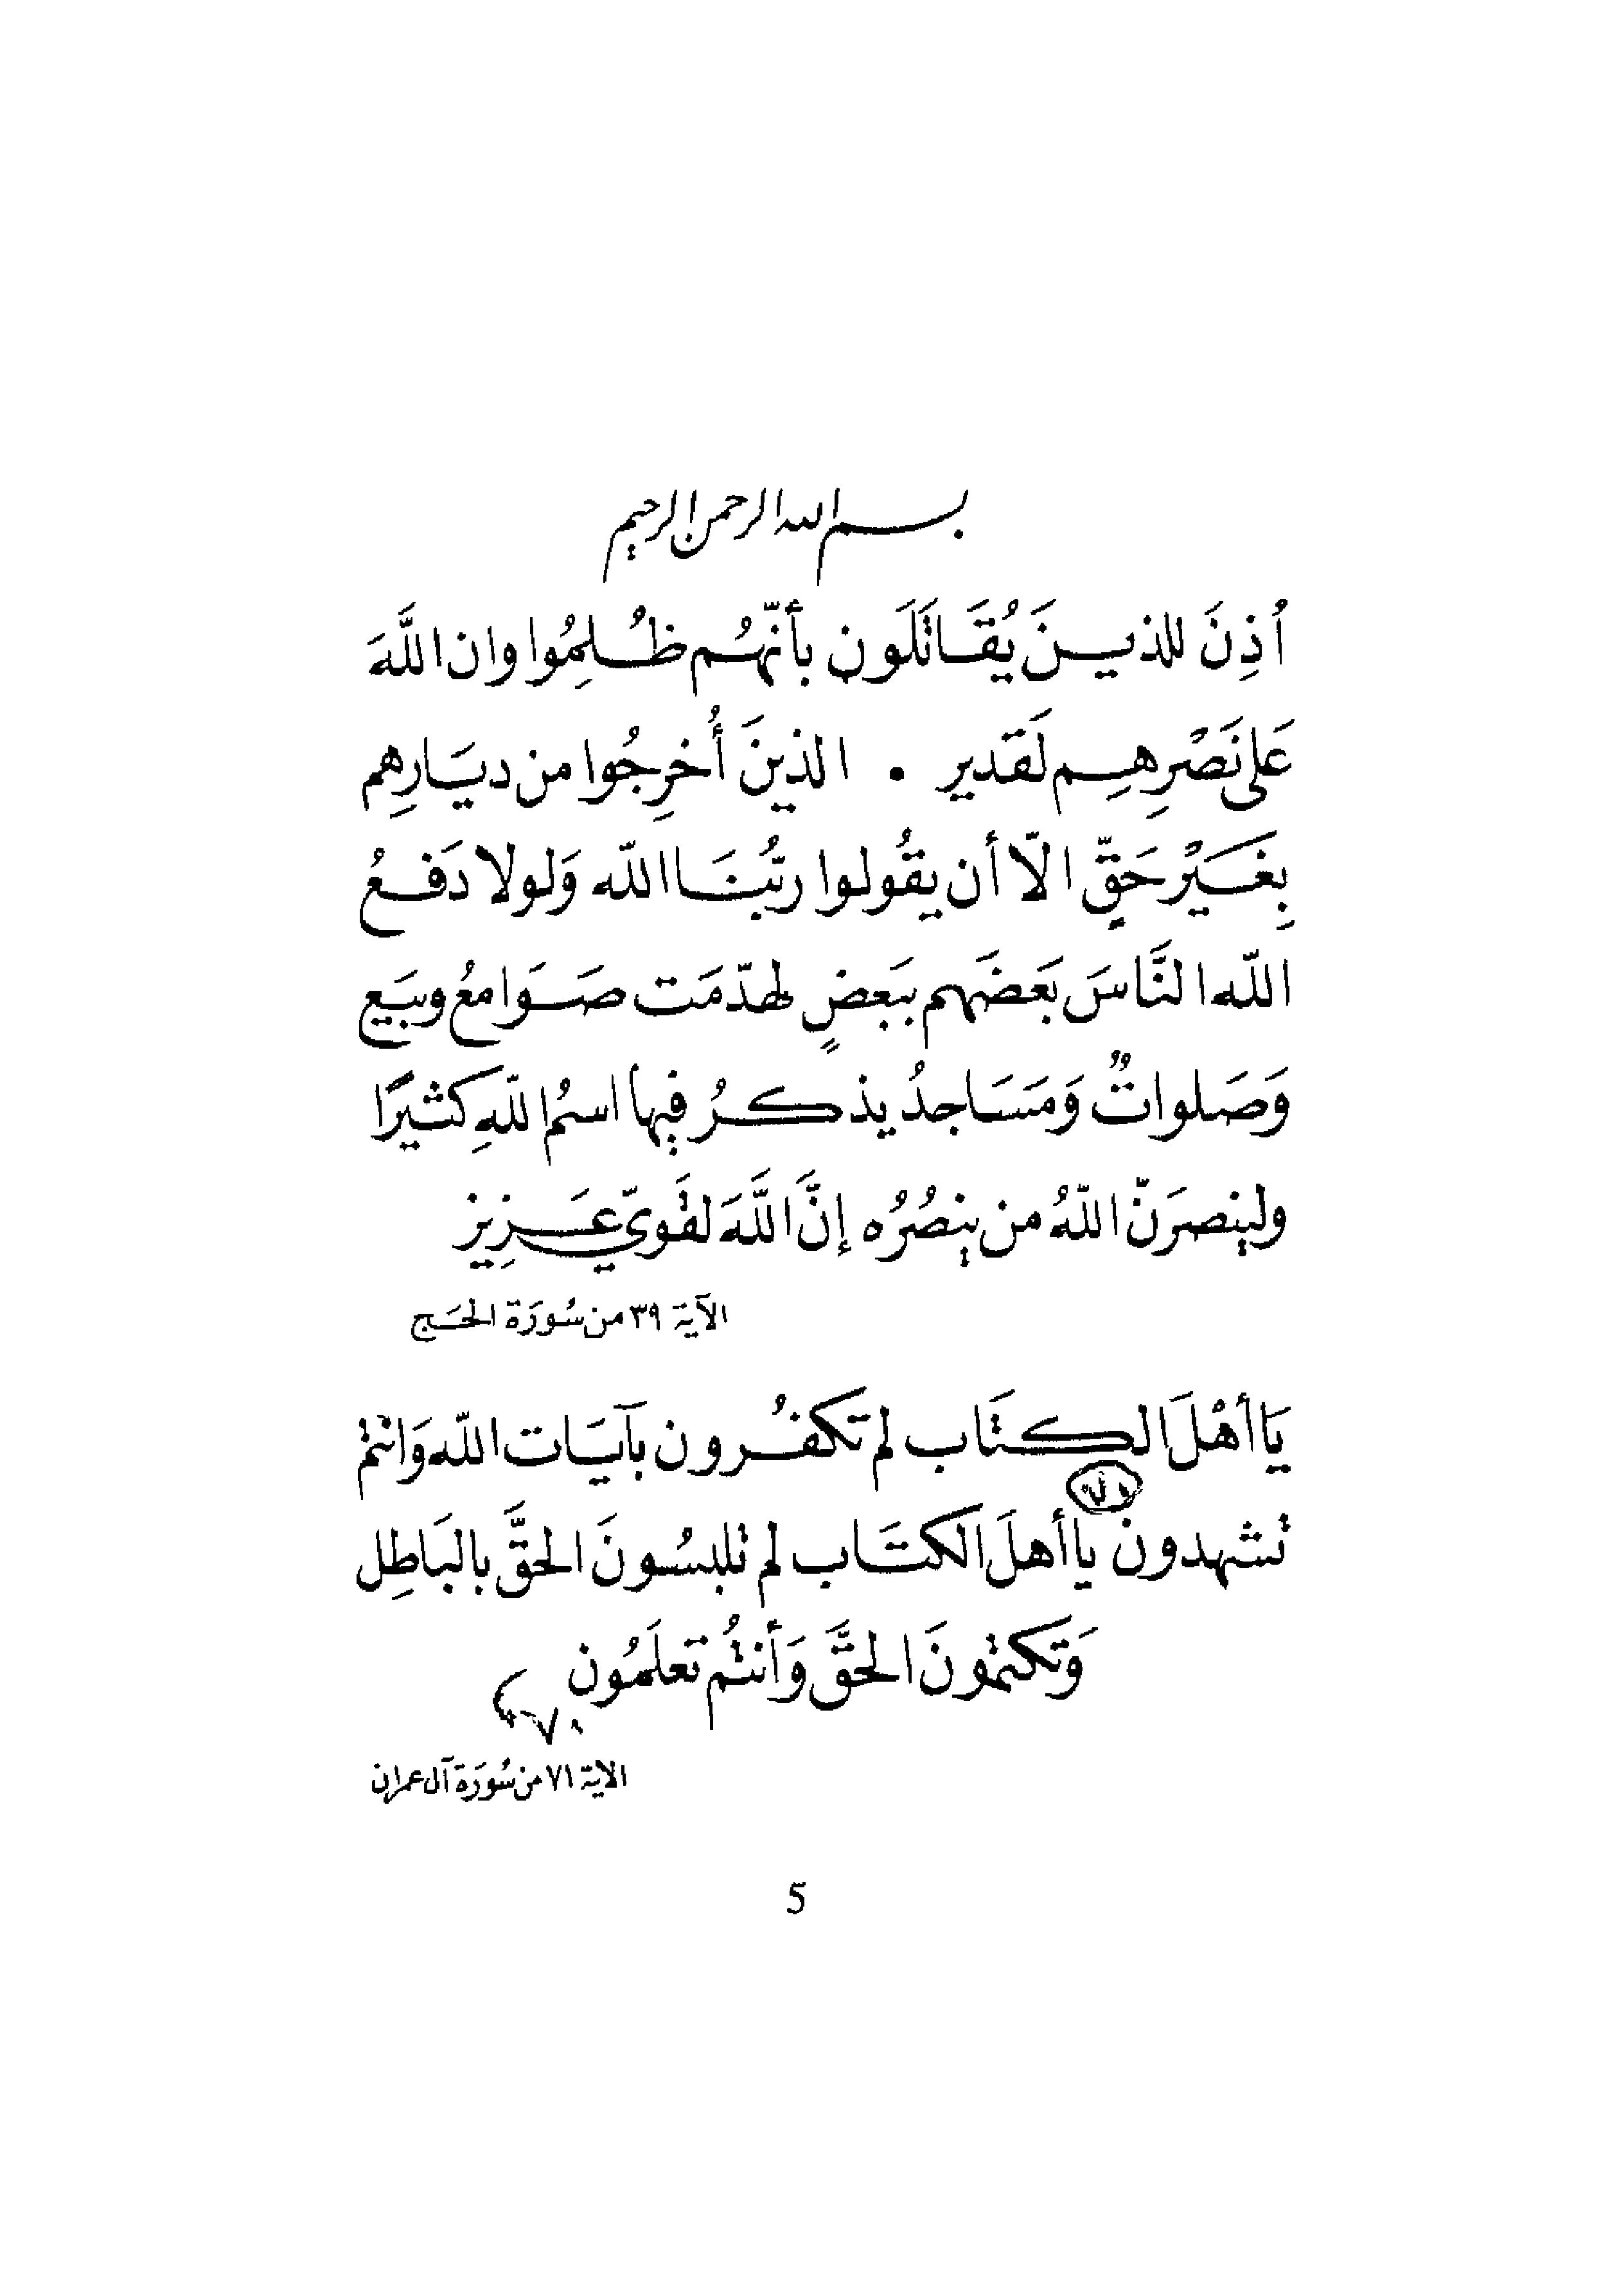 بسم الله الرحمن الرحيم
أُذِنَ للذيـنَ يُقَـاتَلَون بأنّهُـم ظُـلِمُوا وان اللَّهَ
عَلى نَصْرِهِـم لَقَدير . الذينَ أُخرِجُوا من ديَـارِهِم
بِغَـيْر حَقّ الاّ أن يقُولوا ربُّنَـا اللّه وَلولا دَفـعُ
اللّه النَّاسَ بَعَضَهم ببَعضٍ لهدّمَت صَـوَامعُ وبيَع
وَصَلواتٌ وَمَسَاجدُ يذكـرُ فيها اسمُ اللّهِ كثيرًا
ولينصرَنّ اللّهُ من ينصُرُه إنَّ اللَّهَ لقَويّ عَـزِيز
الآية ٣٩ من سُورَة الحَـج
يَا أهْلَ الكـتَاب لم تكفُـرون بآيَـات اللّه وَانتم
٧٠
تشهدون يا أهلَ الكتَـاب لم تلبسُونَ الحقَّ بالبَاطِل
وَتكتمونَ الحقَّ وَأنتُم تعلَمُون
٧٠
الاية ٧١ من سُورَة آل عمران
5